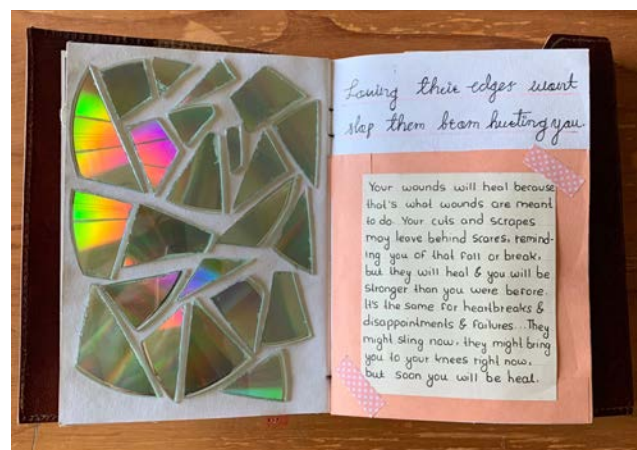 Loving their edges won't
stop them from hurting you.
Your wounds will heal because
that's what wounds are meant
to do. Your cuts and scrapes
may leave behind scares, remind-
ing you of that fall or break,
but they will heal & you will be
stronger than you were before.
It's the same for heartbreaks &
disappointments & failures... They
might sting now, they might bring
you to your knees right now,
but soon you will be heal.